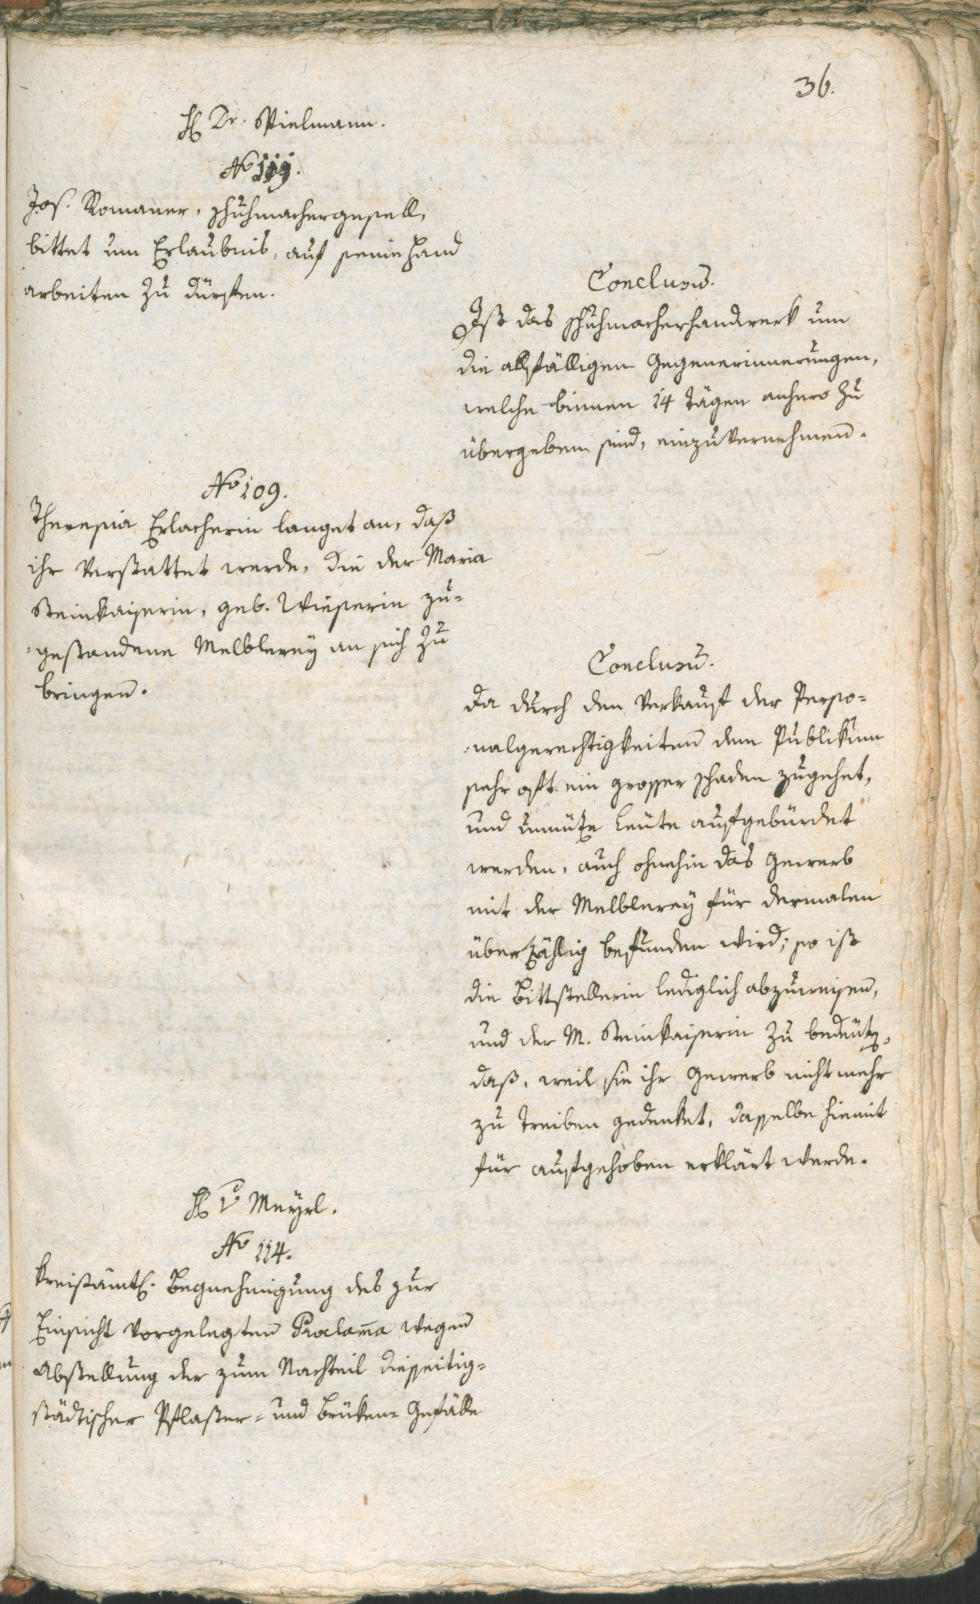 36.
H Dr. Spielmann.
No 119.
Jos. Romaner, Schuhmachergesell,
bittet um Erlaubnis, auf seine Hand
arbeiten zu dürfen.
Conclusū.
Ist das Schuhmacherhandwerk um
die allfälligen Gegenerinnerungen,
welche binnen 14 Tägen anhero zu
übergeben sind, einzuvernehmen.
No 109.
Theresia Erlacherin langet an, daß
ihr verstattet werde, die der Maria
Steinkaiserin, geb. Wieserin zu-
gestandene Melblerey an sich zu
bringen.
Conclusū.
Da durch den Verkauf der Perso-
nalgerechtigkeiten dem Publikum
sehr oft ein grosser Schaden zugehet,
und unnütze Leute aufgebürdet
werden, auch ohnehin das Gewerb
mit der Melblerey für dermalen
überzählig befunden wird; so ist
die Bittstellerin lediglich abzuweisen,
und der M. Steinkaiserin zu bedeuten,
daß, weil sie ihr Gewerb nicht mehr
zu treiben gedenket, dasselbe hiemit
für aufgehoben erklärt werde.
H v Mayrl.
No 114.
Kreisämtl. Begnehmigung des zur
Einsicht vorgelegten Proclama wegen
Abstellung der zum Nachteil diesseitig-
städtischer Pflaster- und Brüken-Gefälle